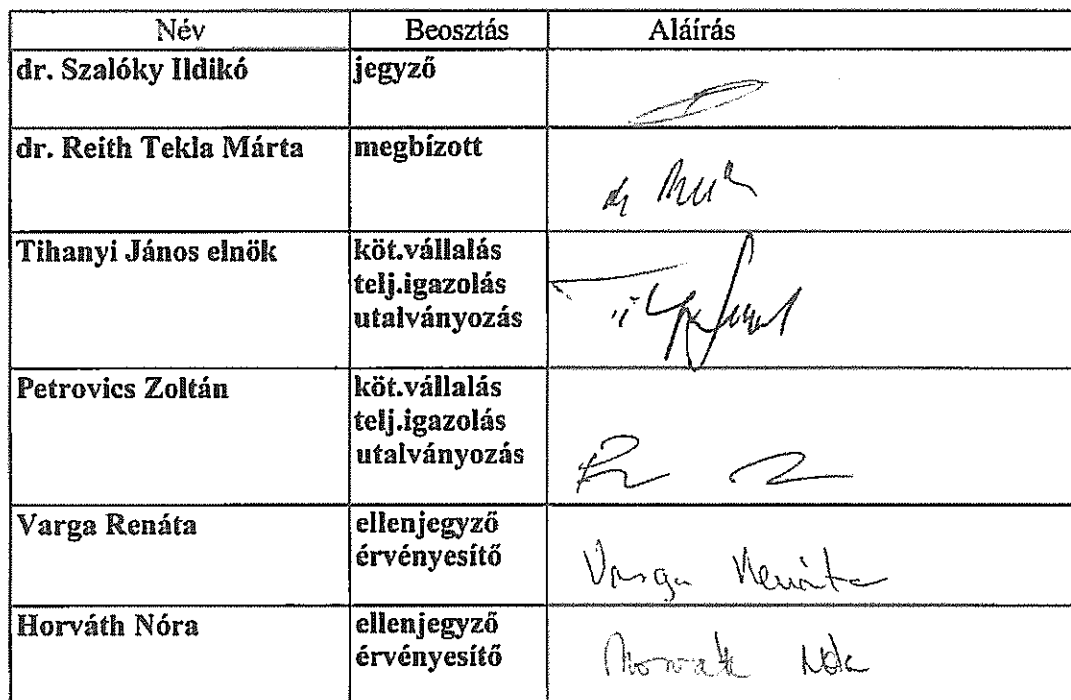 Név Beosztás Aláírás
dr. Szalóky Ildikó jegyző
dr. Reith Tekla Márta megbízott
Tihanyi János elnök köt.vállalás
telj.igazolás
utalványozás
Petrovics Zoltán köt.vállalás
telj.igazolás
utalványozás
Varga Renáta ellenjegyző
érvényesítő
Varga Renáta
Horváth Nóra ellenjegyző
érvényesítő
Horváth Nóra